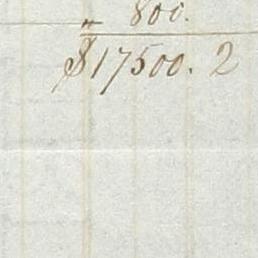 „ 800.
$17500. 2